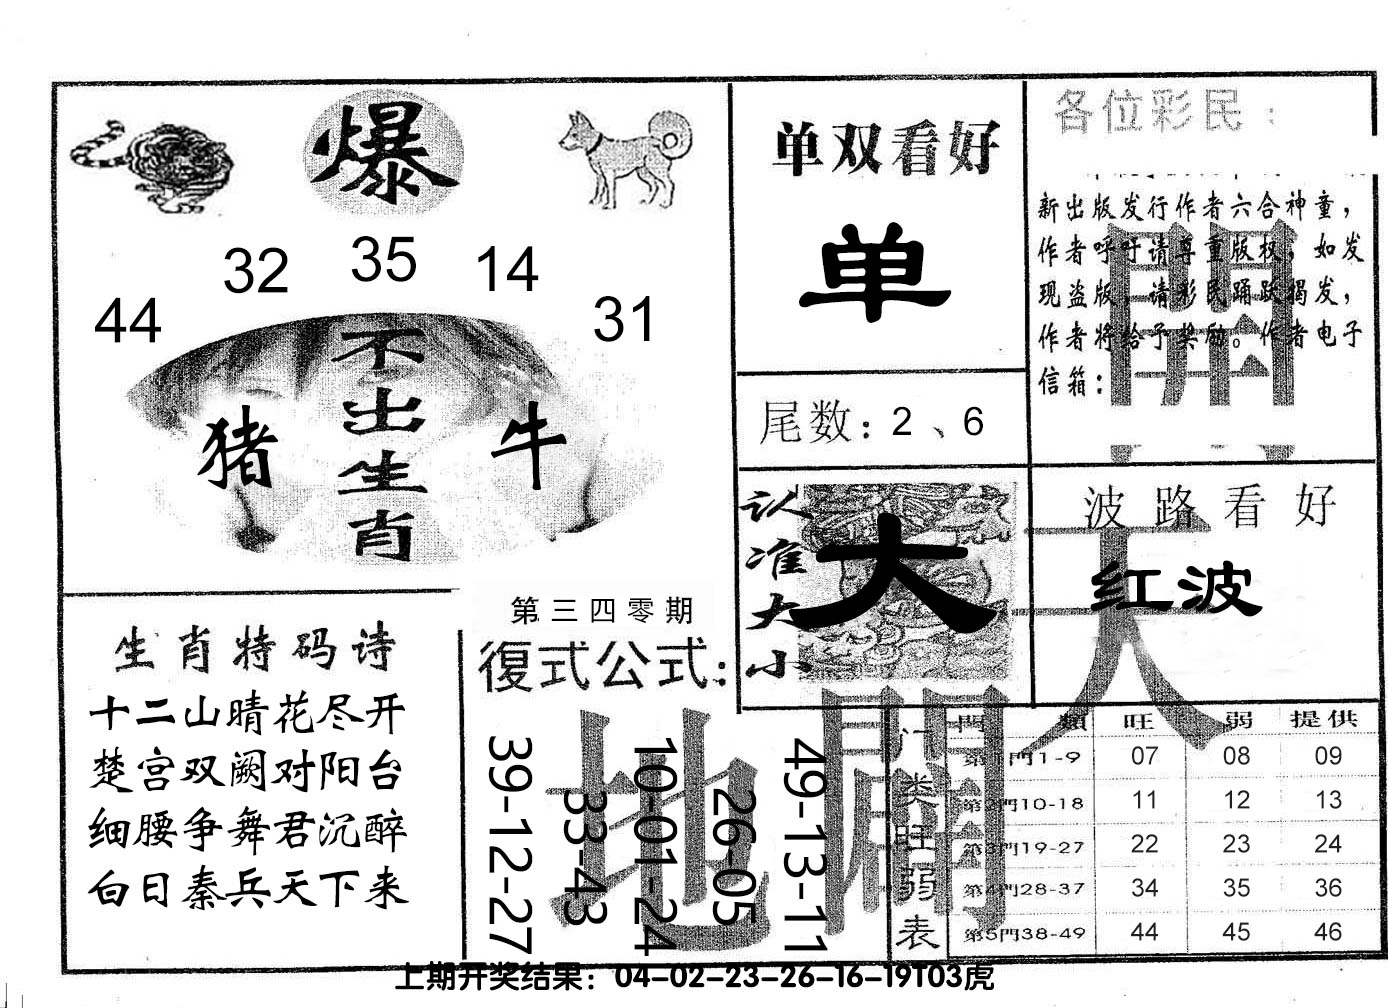 爆
32 35 14
44 31
不出生肖
猪 牛
单双看好
单
尾数：2、6
认准大小
大
各位彩民：
新出版发行作者六合神童，
作者呼吁请尊重版权，如发
现盗版，请彩民踊跃揭发，
作者将给予奖励。作者电子
信箱：
波路看好
红波
生肖特码诗
十二山晴花尽开
楚宫双阙对阳台
细腰争舞君沉醉
白日秦兵天下来
第三四零期
復式公式：
39-12-27
33-43
10-01-24
26-05
49-13-11
天
開
地
闢
门类旺弱表
門 類 旺 弱 提供
第1門1-9 07 08 09
第2門10-18 11 12 13
第3門19-27 22 23 24
第4門28-37 34 35 36
第5門38-49 44 45 46
上期开奖结果：04-02-23-26-16-19T03虎